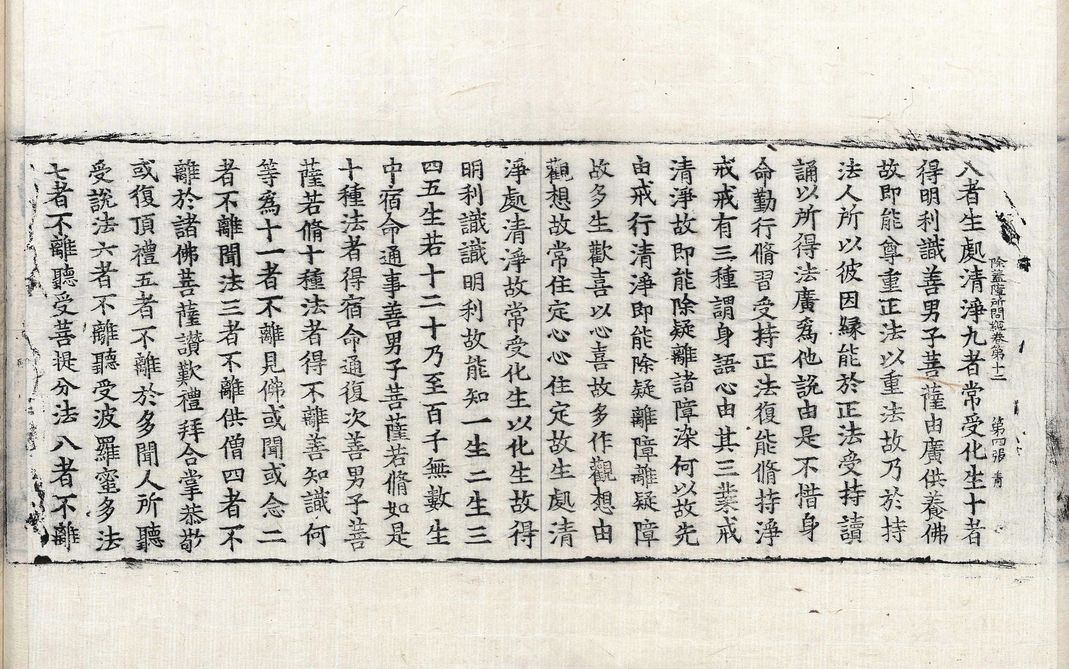 除蓋障所問經卷第十二　第四張　靑
八者生處清淨九者常受化生十者
得明利識善男子菩薩由廣供養佛
故即能尊重正法以重法故乃於持
法人所以彼因緣能於正法受持讀
誦以所得法廣爲他說由是不惜身
命勤行脩習受持正法復能脩持淨
戒戒有三種謂身語心由其三業戒
清淨故即能除疑離諸障染何以故先
由戒行清淨即能除疑離障離疑障
故多生歡喜以心喜故多作觀想由
觀想故常住定心心住定故生處清
淨處清淨故常受化生以化生故得
明利識識明利故能知一生二生三
四五生若十二十乃至百千無數生
中宿命通事善男子菩薩若脩如是
十種法者得宿命通復次善男子菩
薩若脩十種法者得不離善知識何
等爲十一者不離見佛或聞或念二
者不離聞法三者不離供僧四者不
離於諸佛菩薩讚歎禮拜合掌恭敬
或復頂禮五者不離於多聞人所聽
受說法六者不離聽受波羅蜜多法
七者不離聽受菩提分法八者不離